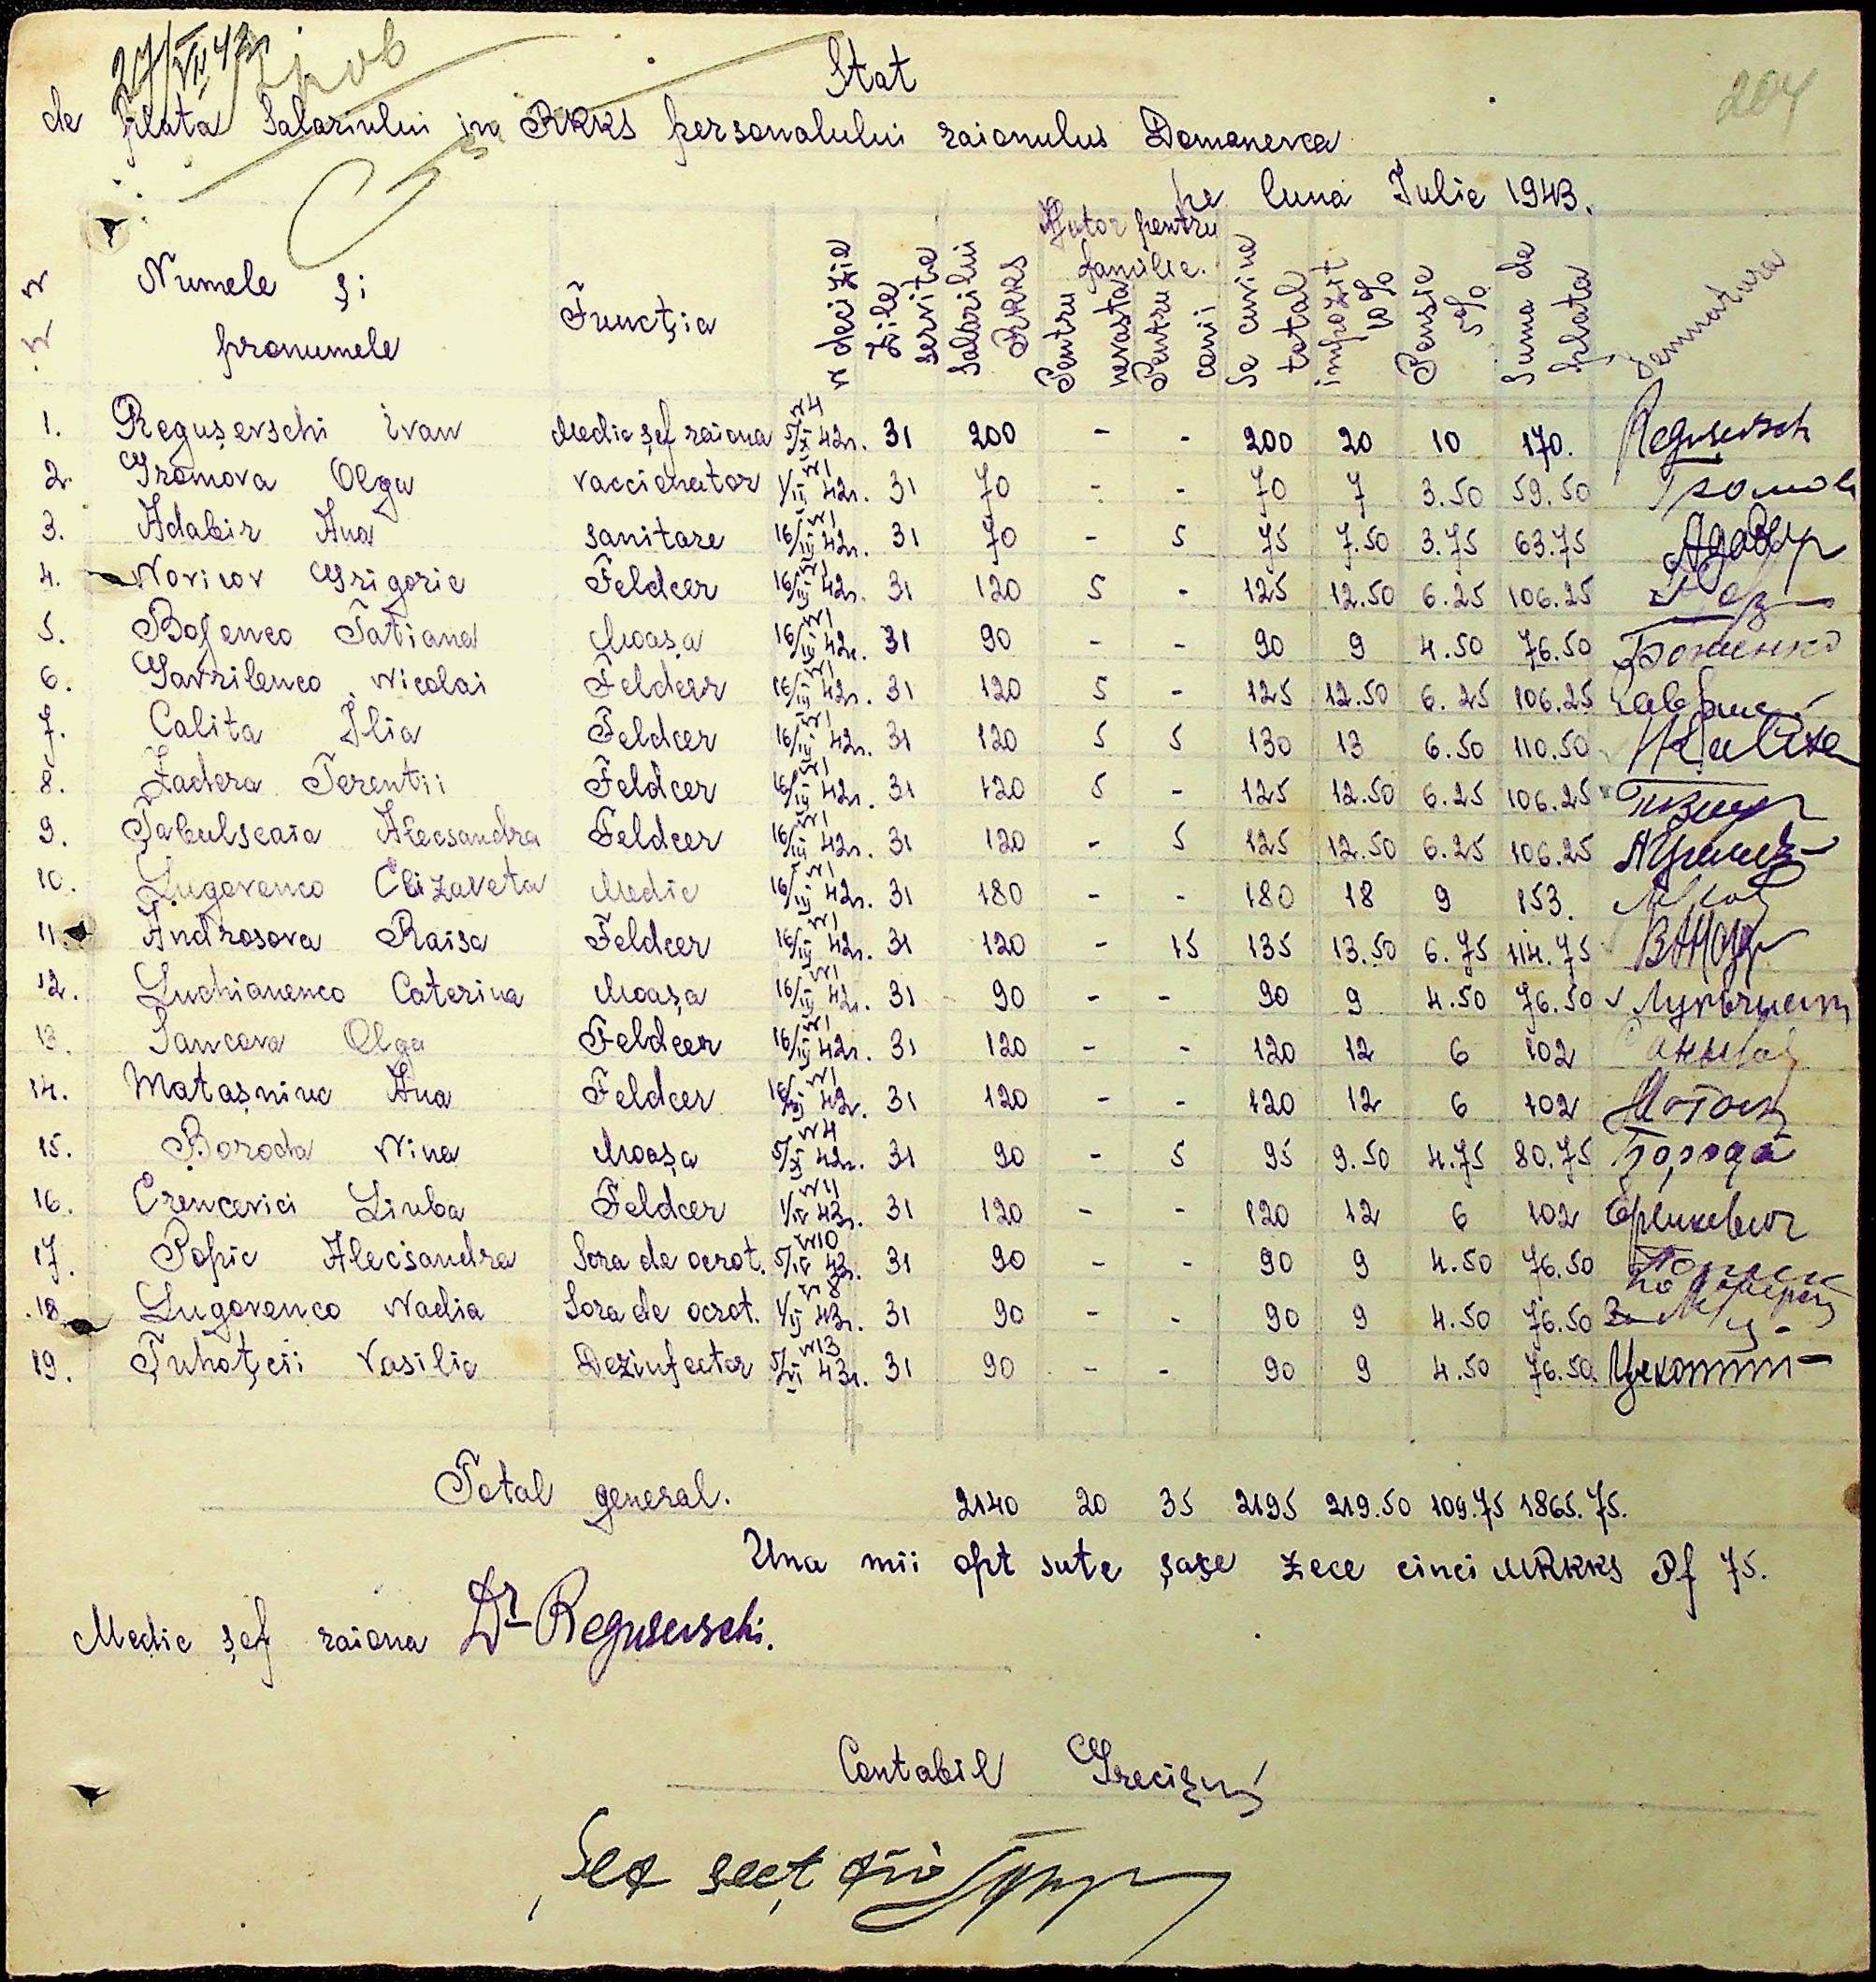 27/VII 43
204
Stat
de plata salariului in RKKS personalului raionulus Domanevca
pe luna Iulie 1943.
N N Numele și pronumele Funcția N decizie Zile servite Salariului RKKS Ajutor pentru familie. Pentru nevasta Pentru conii Se cuvine total impozit 10% Pensie 5% Suma de plata Semnatura
1. Regușevschi Ivan Medic șef raiona N4 5/XI 42n. 31 200 - - 200 20 10 170. Regusevsch
2. Gromova Olga vaccinator N1 1/III 42n. 31 70 - - 70 7 3.50 59.50 Громов
3. Adabir Ana sanitare N1 16/III 42n. 31 70 - 5 75 7.50 3.75 63.75 Адабир
4. Novicov Grigorie Feldcer N1 16/III 42n. 31 120 5 - 125 12.50 6.25 106.25
5. Bojenco Tatiana Moașa N1 16/III 42n. 31 90 - - 90 9 4.50 76.50 Боженко
6. Gavrilenco Nicolai Feldcer N1 16/III 42n. 31 120 5 - 125 12.50 6.25 106.25
7. Calita Ilia Feldcer N1 16/III 42n. 31 120 5 5 130 13 6.50 110.50 Калита
8. Zadera Terentii Feldcer N1 16/III 42n. 31 120 5 - 125 12.50 6.25 106.25
9. Tabulscaia Alecsandra Feldcer N1 16/III 42n. 31 120 - 5 125 12.50 6.25 106.25
10. Lugovenco Elizaveta Medic N1 16/III 42n. 31 180 - - 180 18 9 153.
11. Androsova Raisa Feldcer N1 16/III 42n. 31 120 - 15 135 13.50 6.75 114.75
12. Luchianenco Caterina Moașa N1 16/III 42n. 31 90 - - 90 9 4.50 76.50 v
13. Sancova Olga Feldcer N1 16/III 42n. 31 120 - - 120 12 6 102
14. Matașniuc Ana Feldcer N1 16/III 42n. 31 120 - - 120 12 6 102
15. Boroda Nina Moașa N4 5/XI 42n. 31 90 - 5 95 9.50 4.75 80.75 Борода
16. Erencevici Liuba Feldcer N11 1/IV 43n. 31 120 - - 120 12 6 102 Еренкевич
17. Popic Alecsandra Sora de ocrot. N10 5/IV 43n. 31 90 - - 90 9 4.50 76.50
18. Lugovenco Nadia Sora de ocrot. N8 1/III 43n. 31 90 - - 90 9 4.50 76.50
19. Tuhoțcii Vasilie Dezinfector N13 5/VI 43n. 31 90 - - 90 9 4.50 76.50.
Total general. 2140 20 35 2195 219.50 109.75 1865.75.
Una mii opt sute șașe zece cinci MRKKS Pf 75.
Medic șef raiona Dr Regusevschi.
Contabil
Șef secț